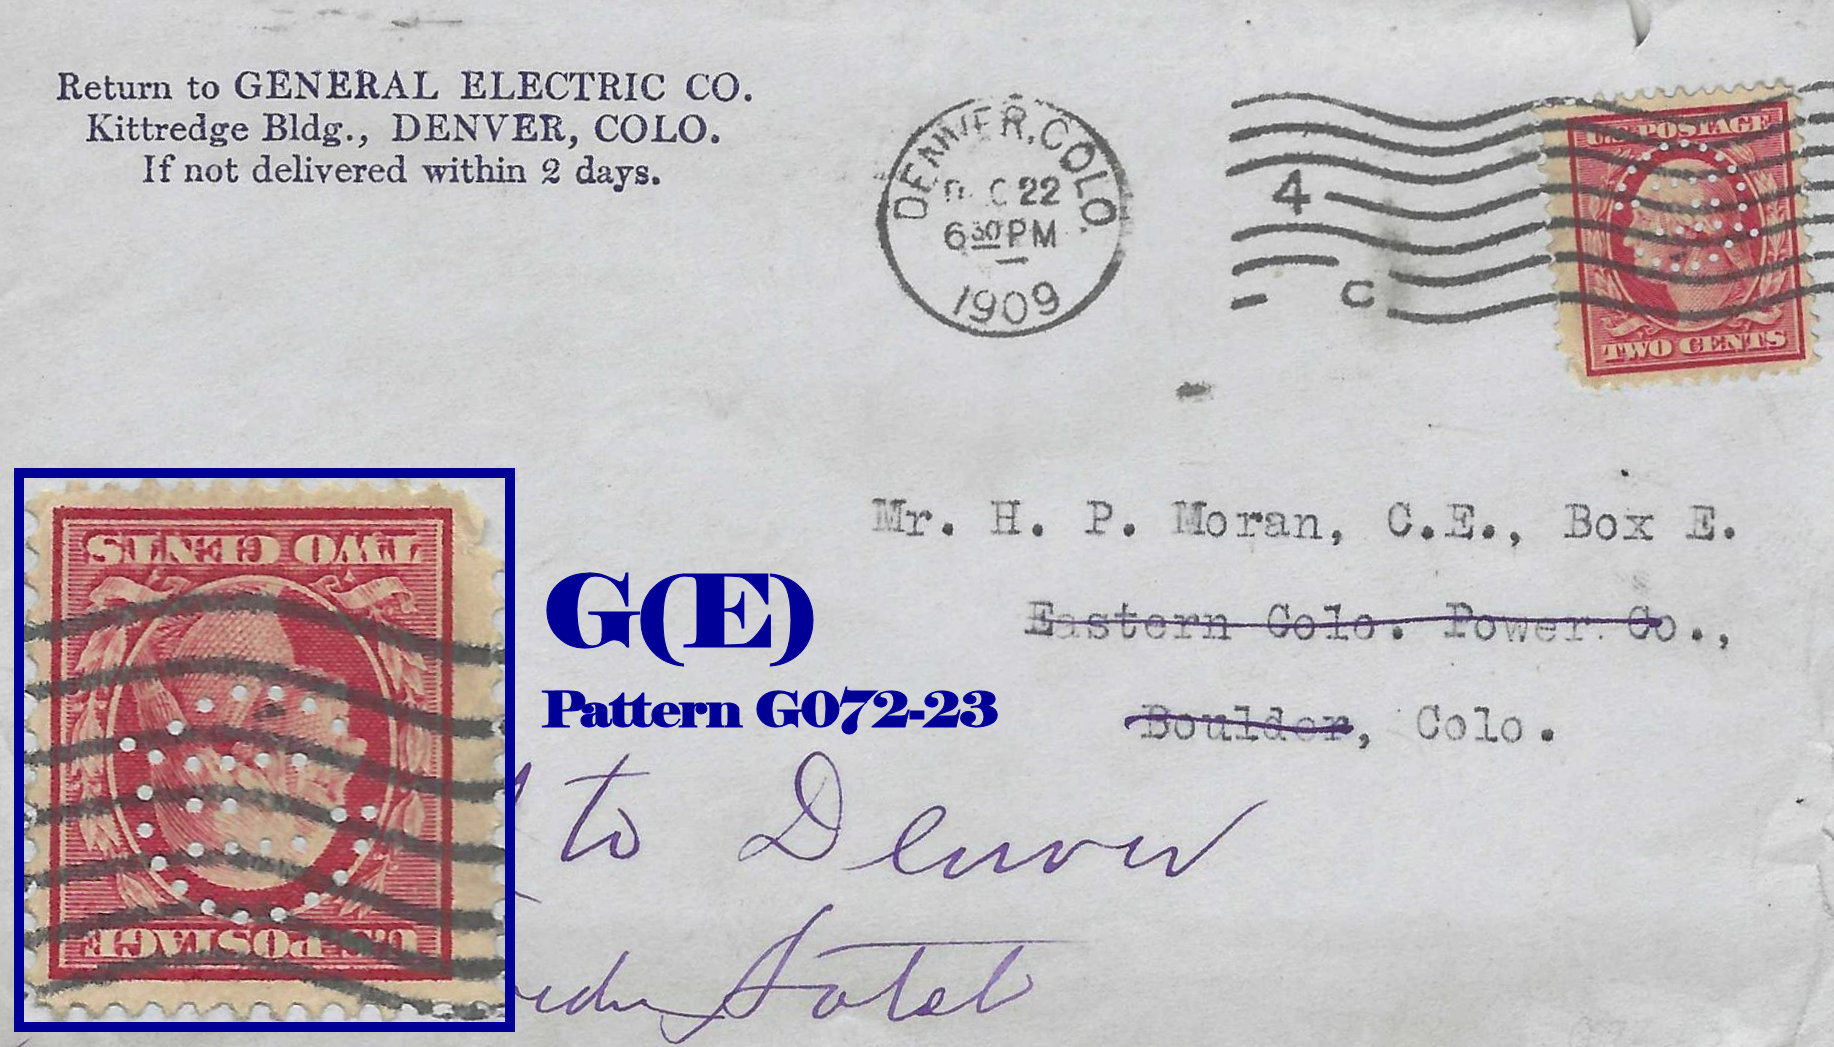 Return to GENERAL ELECTRIC CO.
Kittredge Bldg., DENVER, COLO.
If not delivered within 2 days.
DENVER, COLO.
22
6 30 PM
1909
4
C
U.S. POSTAGE
TWO CENTS
Mr. H. P. Moran, C.E., Box E.
Eastern Colo. Power Co.,
Boulder, Colo.
TWO CENTS
U.S. POSTAGE
G(E)
Pattern G072-23
to Denver
Hotel